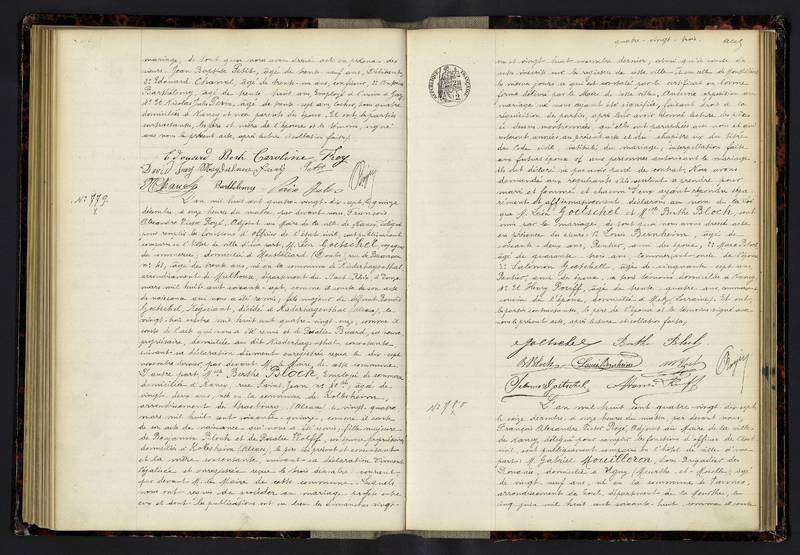 mariage, de tout quoi nous avons dressé acte en présence des
sieurs Jean Baptiste Petit, âgé de trente neuf ans,
Edouard Chanal, âgé de trente un ans, employé, 3º
Barthélemy, âgé de trente huit ans, Employé
4º Et Nicolas Jules Pérou, âgé de trente sept ans, cocher, tous quatre
domiciliés à Nancy et non parents des époux. Et ont les parties
contractantes, les père et mère de l'épouse et les témoins, signé
avec nous le présent acte, après lecture et collation faites.
Edouard Both Caroline Troy
Petit
Barthélemy Royé
Nº 779.
L'an mil huit cent quatre-vingt-dix-sept, le quinze
décembre, à onze heures du matin, par devant nous, François
Alexandre Victor Royé, Adjoint au Maire de la ville de Nancy, délégué
pour remplir les fonctions d'officier de l'état civil, ont publiquement
comparu en l'hôtel de ville d'une part, M. Léon Goetschel, voyageur
de commerce, domicilié à Montbéliard (Doubs), rue de Besançon
nº 41, âgé de trente ans, né en la commune de Niederhagenthal
arrondissement de Mulhouse, département du Haut Rhin, le douze
mars mil huit cent soixante-sept, comme il conste de son acte
de naissance qui nous a été remis, fils majeur de défunt Benoît
Goetschel, Négociant, décédé à Niederhagenthal (Alsace), le
vingt-trois octobre mil huit cent quatre-vingt-neuf, comme il
conste de l'acte qui nous a été remis et de Rosalie Picard, sa veuve
propriétaire, domiciliée au dit Niederhagenthal, consentante,
suivant sa déclaration dûment enregistrée reçue le dix-sept
novembre dernier par devant M. le Maire de cette commune.
D'autre part Melle Berthe BLOCH, Employée de commerce
domiciliée à Nancy, rue Saint Jean nº 50 bis, âgée de
vingt-deux ans, née en la commune de Kolbsheim,
arrondissement de Strasbourg (Alsace), le vingt-quatre
mars mil huit cent soixante-quinze, comme il conste
de son acte de naissance qui nous a été remis, fille majeure
de Benjamin Bloch et de Rosalie Wolff, son épouse, propriétaires
domiciliés à Kolbsheim (Alsace), le père ici présent et consentant
et la mère consentante, suivant sa déclaration dûment
légalisée et enregistrée reçue le trois décembre courant
par devant M. le Maire de cette commune. Lesquels
nous ont requis de procéder au mariage projeté entre
eux et dont les publications ont eu lieu les dimanches vingt-
quatre-vingt-trois.
REPUBLIQUE FRANÇAISE
un et vingt-huit novembre dernier, ainsi qu'il conste des
actes inscrits sur les registres de cette ville et en celle de Montbéliard
les mêmes jours, ce qui est constaté par le certificat en bonne
forme délivré par le Maire de cette ville, Aucune opposition au
mariage ne nous ayant été signifiée, faisant droit à la
réquisition des parties, après leur avoir donné lecture des pièces
ci dessus mentionnées, qu'elles ont paraphées avec nous et qui
resteront annexées au présent acte et du chapitre VI du titre
du Code civil, intitulé du mariage; interpellation faite
aux futurs époux et aux personnes autorisant le mariage,
ils ont déclaré ne pas avoir passé de contrat. Nous avons
demandé aux requérants s'ils veulent se prendre pour
mari et femme et chacun d'eux ayant répondu sépa-
rément et affirmativement, déclarons au nom de la loi
que M. Léon Goetschel et Melle Berthe BLOCH, sont
unis par le mariage, de tout quoi nous avons dressé acte
en présence des sieurs 1º Louis Bernheim, âgé de
soixante-deux ans, Rentier, ami des époux, 2º Marx Bloch
âgé de quarante-trois ans, commerçant, oncle de l'épouse
3º Salomon Goetschel, âgé de cinquante-sept ans,
Rentier, ami des époux, ces trois témoins domiciliés à Nancy
4º Et Henry Poriff, âgé de trente-quatre ans, commerçant
cousin de l'épouse, domicilié à Metz (Lorraine). Et ont,
les parties contractantes, le père de l'épouse et les témoins signé avec
nous le présent acte, après lecture et collation faites.
Goetschel Berthe Bloch
B Bloch Louis Bernheim M Bloch
Salomon Goetschel Royé
Nº 780.
L'an mil huit cent quatre-vingt-dix-sept
le seize décembre, à onze heures du matin, par devant nous,
François Alexandre Victor Royé, Adjoint au Maire de la ville
de Nancy, délégué pour remplir les fonctions d'officier de l'état
civil, ont publiquement comparu en l'hôtel de ville d'une
part, M. Gabriel Moreilleron, sous Brigadier des
Douanes, domicilié à Igney (Meurthe-et-Moselle), âgé
de vingt-neuf ans, né en la commune de Vannes,
arrondissement de Toul, département de la Meurthe, le
cinq juin mil huit cent soixante-huit, comme il conste